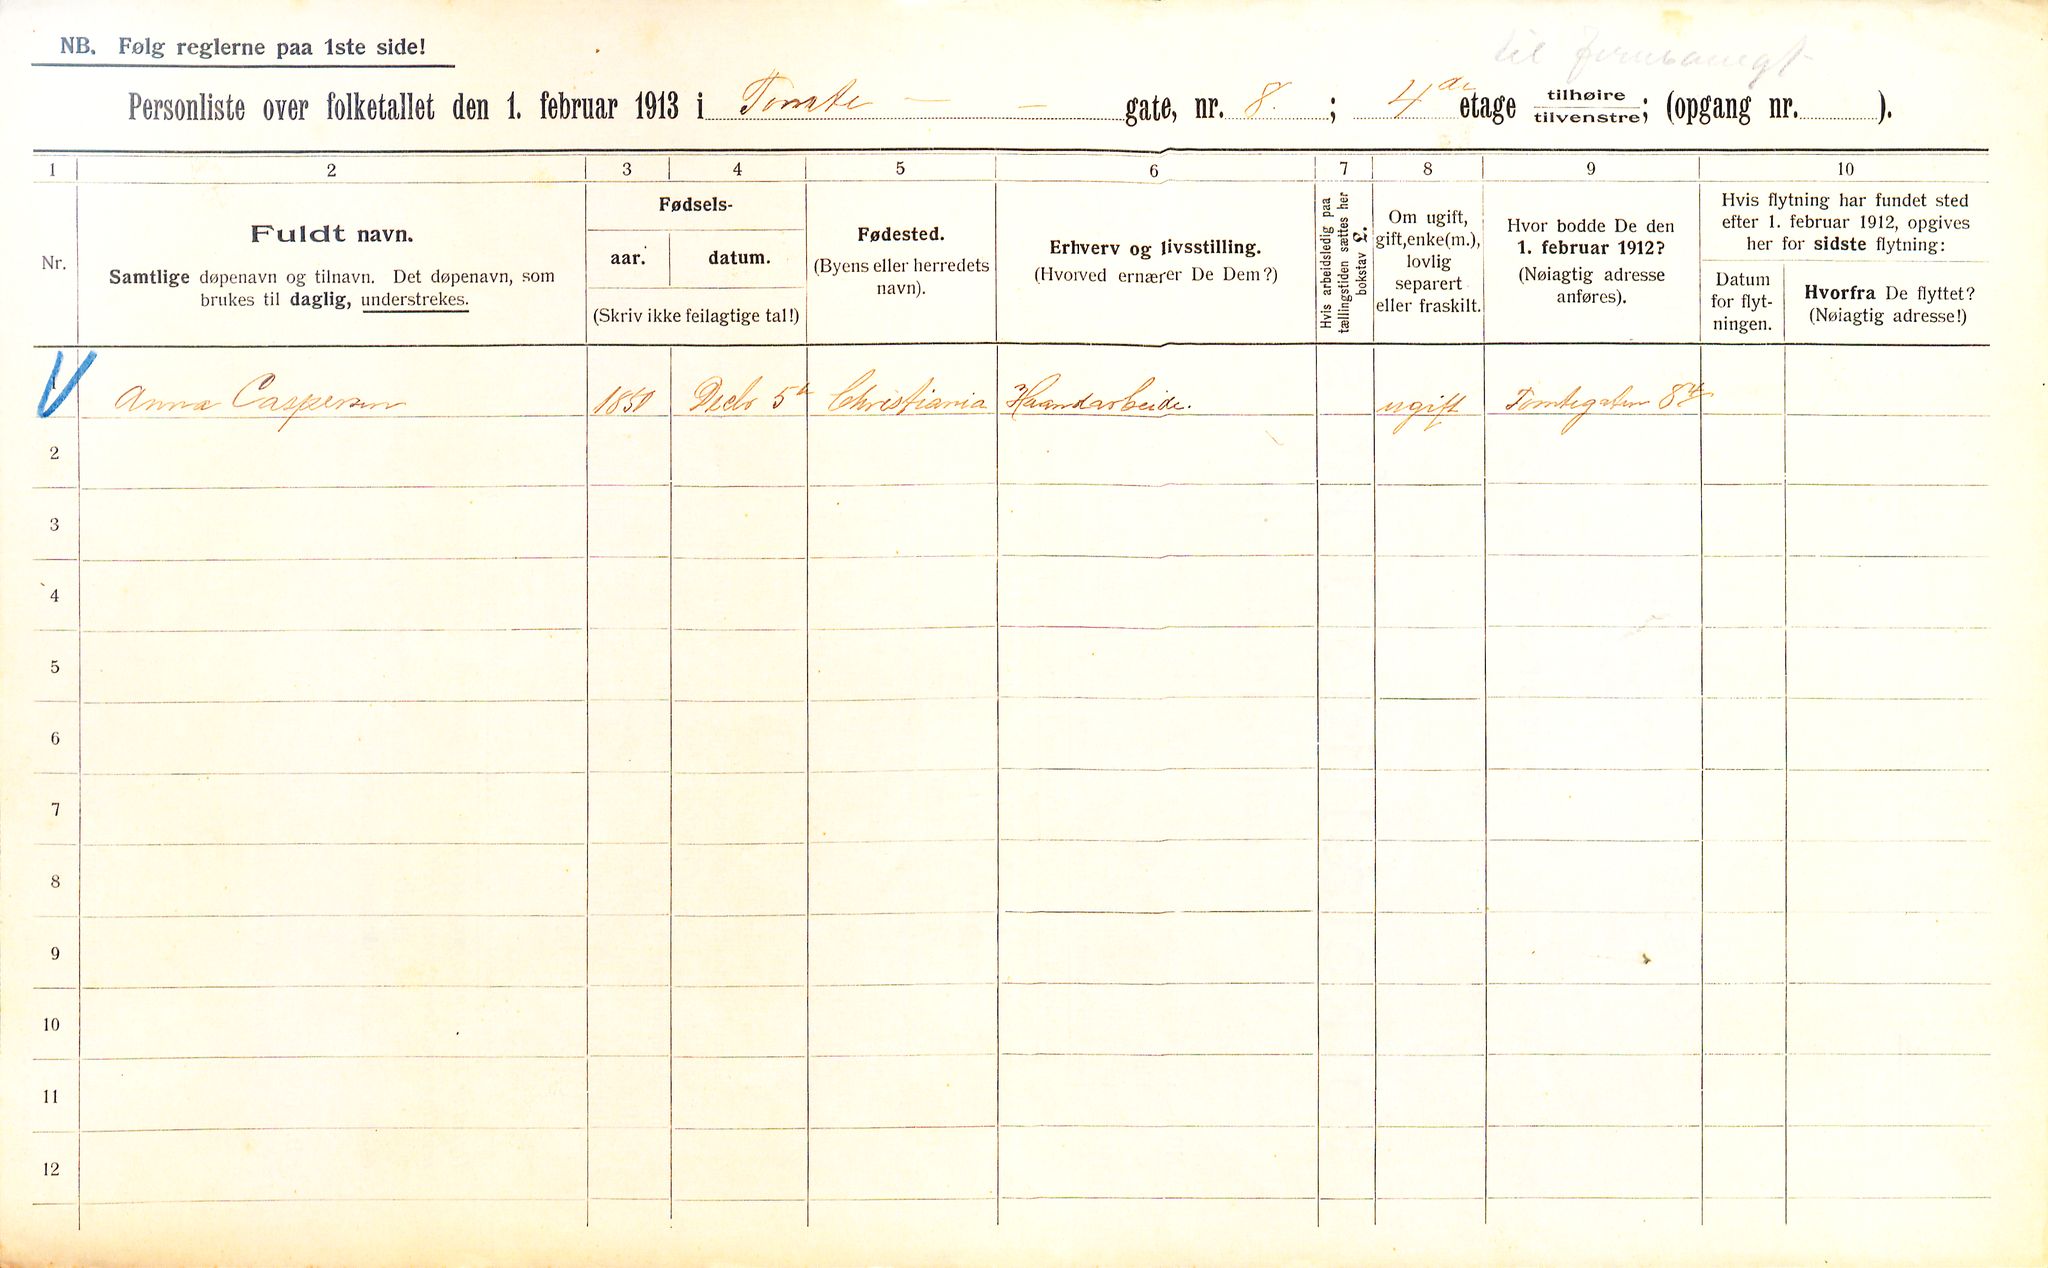 NB. Følg reglerne paa 1ste side!
til
Personliste over folketallet den 1. februar 1913 i Tomte - - gate, nr. 8. ; 4de etage tilhøire tilvenstre; (opgang nr. ).
1 2 3 4 5 6 7 8 9 10
Nr.
Fuldt navn.
Samtlige døpenavn og tilnavn. Det døpenavn, som
brukes til daglig, understrekes.
Fødsels-
aar. datum.
(Skriv ikke feilagtige tal!)
Fødested.
(Byens eller herredets
navn).
Erhverv og livsstilling.
(Hvorved ernærer De Dem?)
Hvis arbeidsledig paa
tællingstiden sættes her
bokstav L.
Om ugift,
gift, enke(m.),
lovlig
separert
eller fraskilt.
Hvor bodde De den
1. februar 1912?
(Nøiagtig adresse
anføres).
Hvis flytning har fundet sted
efter 1. februar 1912, opgives
her for sidste flytning:
Datum
for flyt-
ningen.
Hvorfra De flyttet?
(Nøiagtig adresse!)
1 Anna Caspersen 1850 Decbr 5te Christiania Haandarbeide. ugift Tomtegaten 8
2
3
4
5
6
7
8
9
10
11
12